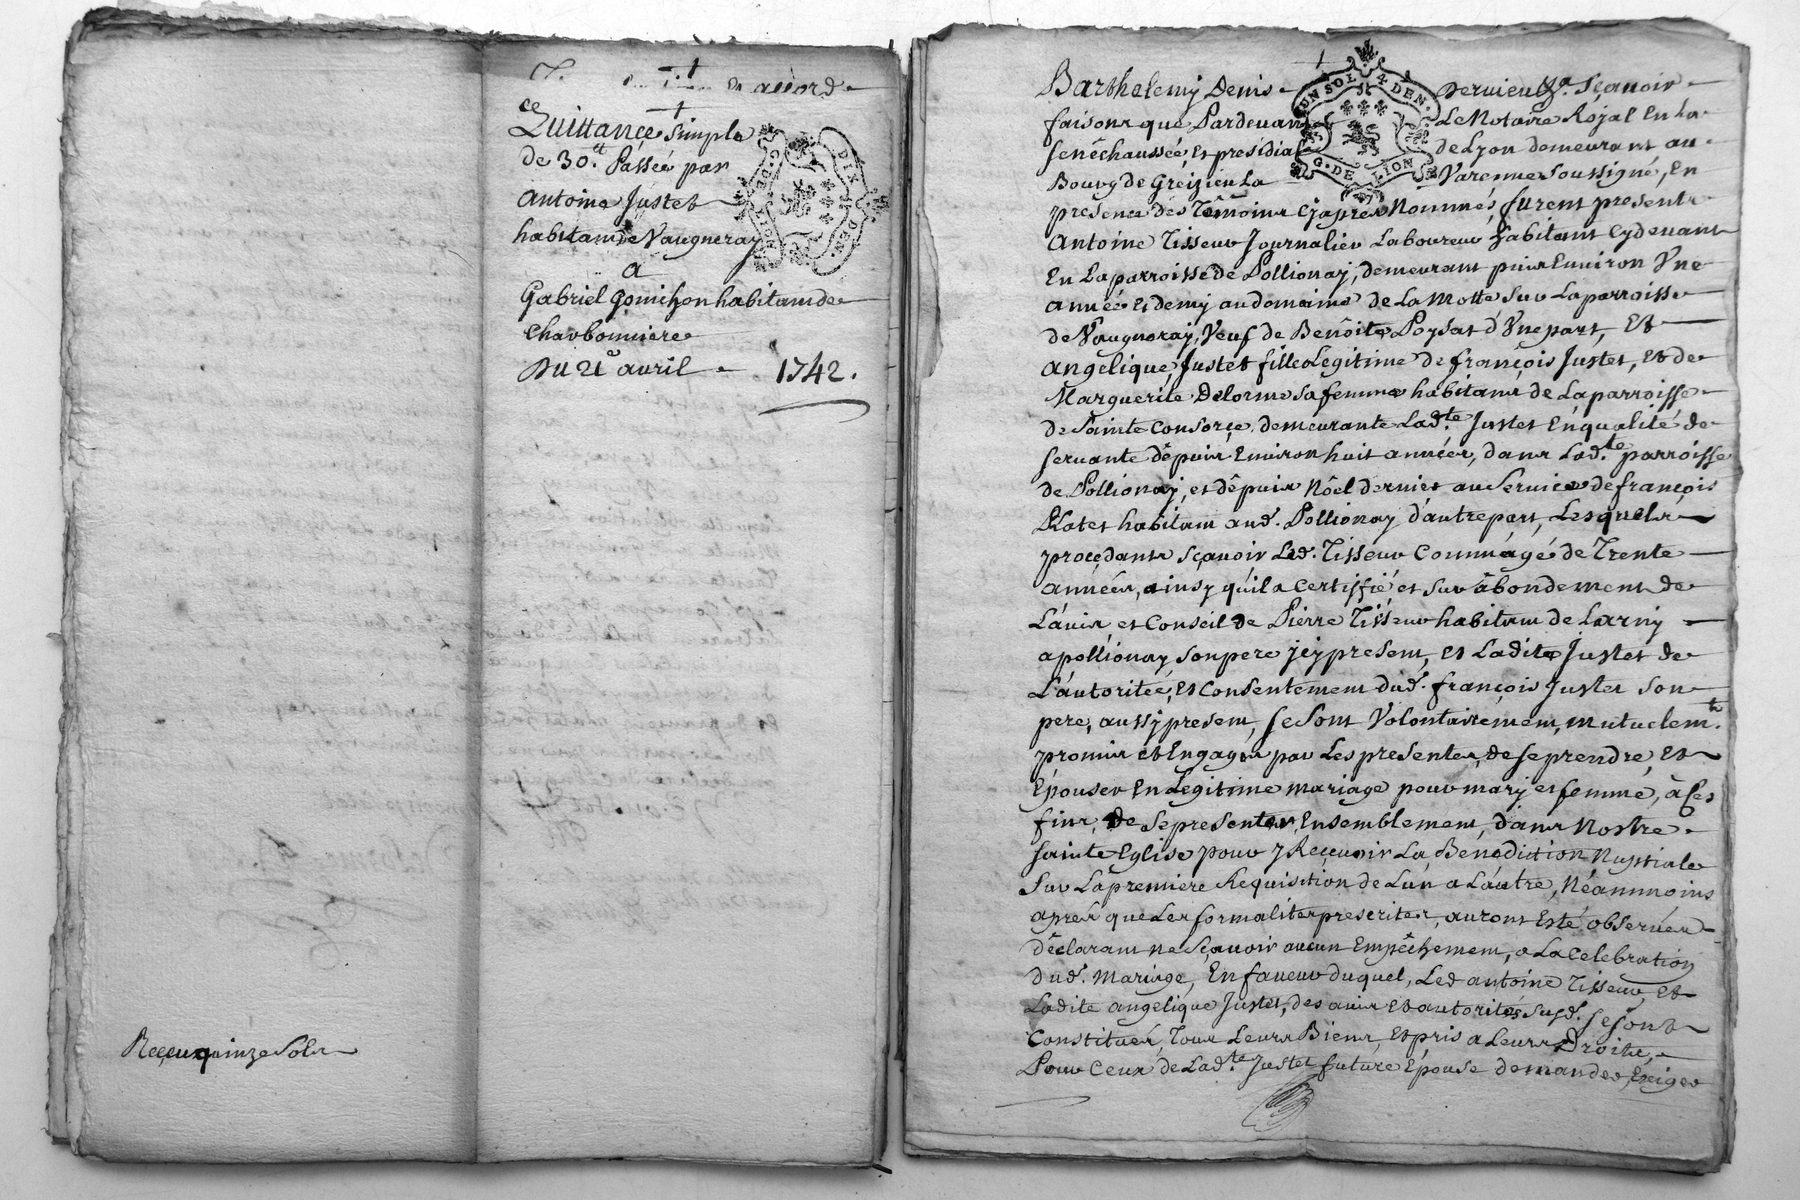 accord
ce
Quittance simple
de 30.tt Passée par
Antoine Justet
habitant de Vaugneray
a
Gabriel Gonichon habitant de
Charbonniere
Du 21e avril 1742.
Reçeu quinze Sols
UN SOL 4 DEN.
G. DE LION
Barthelemy Denis Dervieu Sçavoir
faisons que Pardevant Le Notaire Royal En La
senéchaussée, et presidial de Lyon demeurant au
Bourg de Greizieu La Varenne Soussigné, En
presence des Témoins Cyaprés Nommés, furent presents
Antoine Tisseur Journalier Laboureur habitant Cydevant
En La parroisse de Pollionay, demeurant puis Environ Vne
année Et demy au domaine de La Motte sur La parroisse
de Vaugneray, Veuf de Benoîte Poysat d'Vne part, Et
angelique Justet fille Legitime de françois Justet, Et de
Marguerite Delorme sa femme habitants de La parroisse
de Sainte Consorçe, demeurante Lad.te Justet En qualité de
servante dépuis Environ huit années, dans Lad.te parroisse
de Pollionay, et dépuis Nôel dernier au Service de françois
Ratet habitant aud. Pollionay d'autre part, Lesquels
proçedants sçavoir Led. Tisseur Comm'agé de Trente
années, ainsy qu'il a Certiffié et sur abondement de
L'avis et Conseil de Pierre Tisseur habitant de Larny
a pollionay son pere jcy present, et Ladite Justet de
L'autoritéé, Et Consentement dud. françois Justet son
pere, aussy present, se sont Volontairement, mutuelemt.
promis et Engagés par Les presentes, de se prendre, Et
Epouser En Légitime mariage pour mary et femme, à Ces
fins, de se presenter Ensemblement, dans Nostre
sainte Eglise pour y Reçevoir La Benediction Nuptiale
Sur La premiere Requisition de L'un a L'autre, Néammoins
aprés que Les formalités prescrites, auront Esté observées
déclarants ne sçavoir aucun Empêchement, a La Celebration
dud. Mariage, En faveur duquel, Led antoine Tisseur, Et
Ladite angelique Justet, des avis Et autorités susd. se sont
Constitués, Tous Leurs Biens, Et pris a Leurs Droits,
Pour Ceux de Lad.te Justet future Epouse demander, Exiger